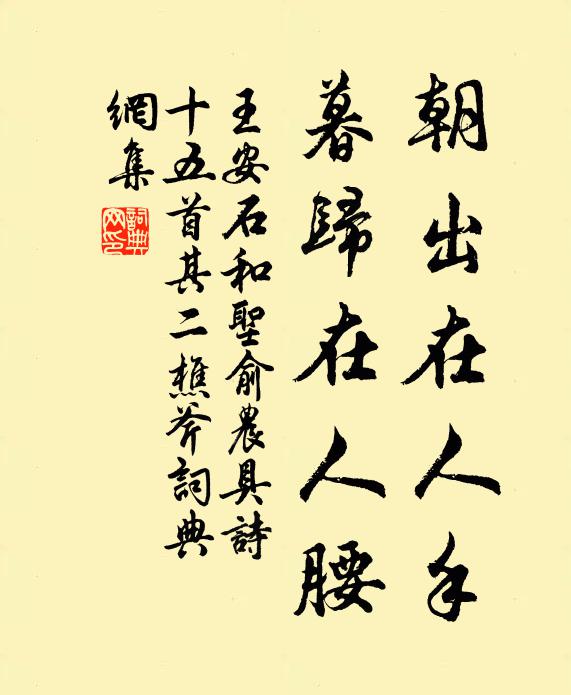 朝出在人手
暮歸在人腰
王安石和聖俞農具詩
十五首其二樵斧詞典
網集
詞典
网印